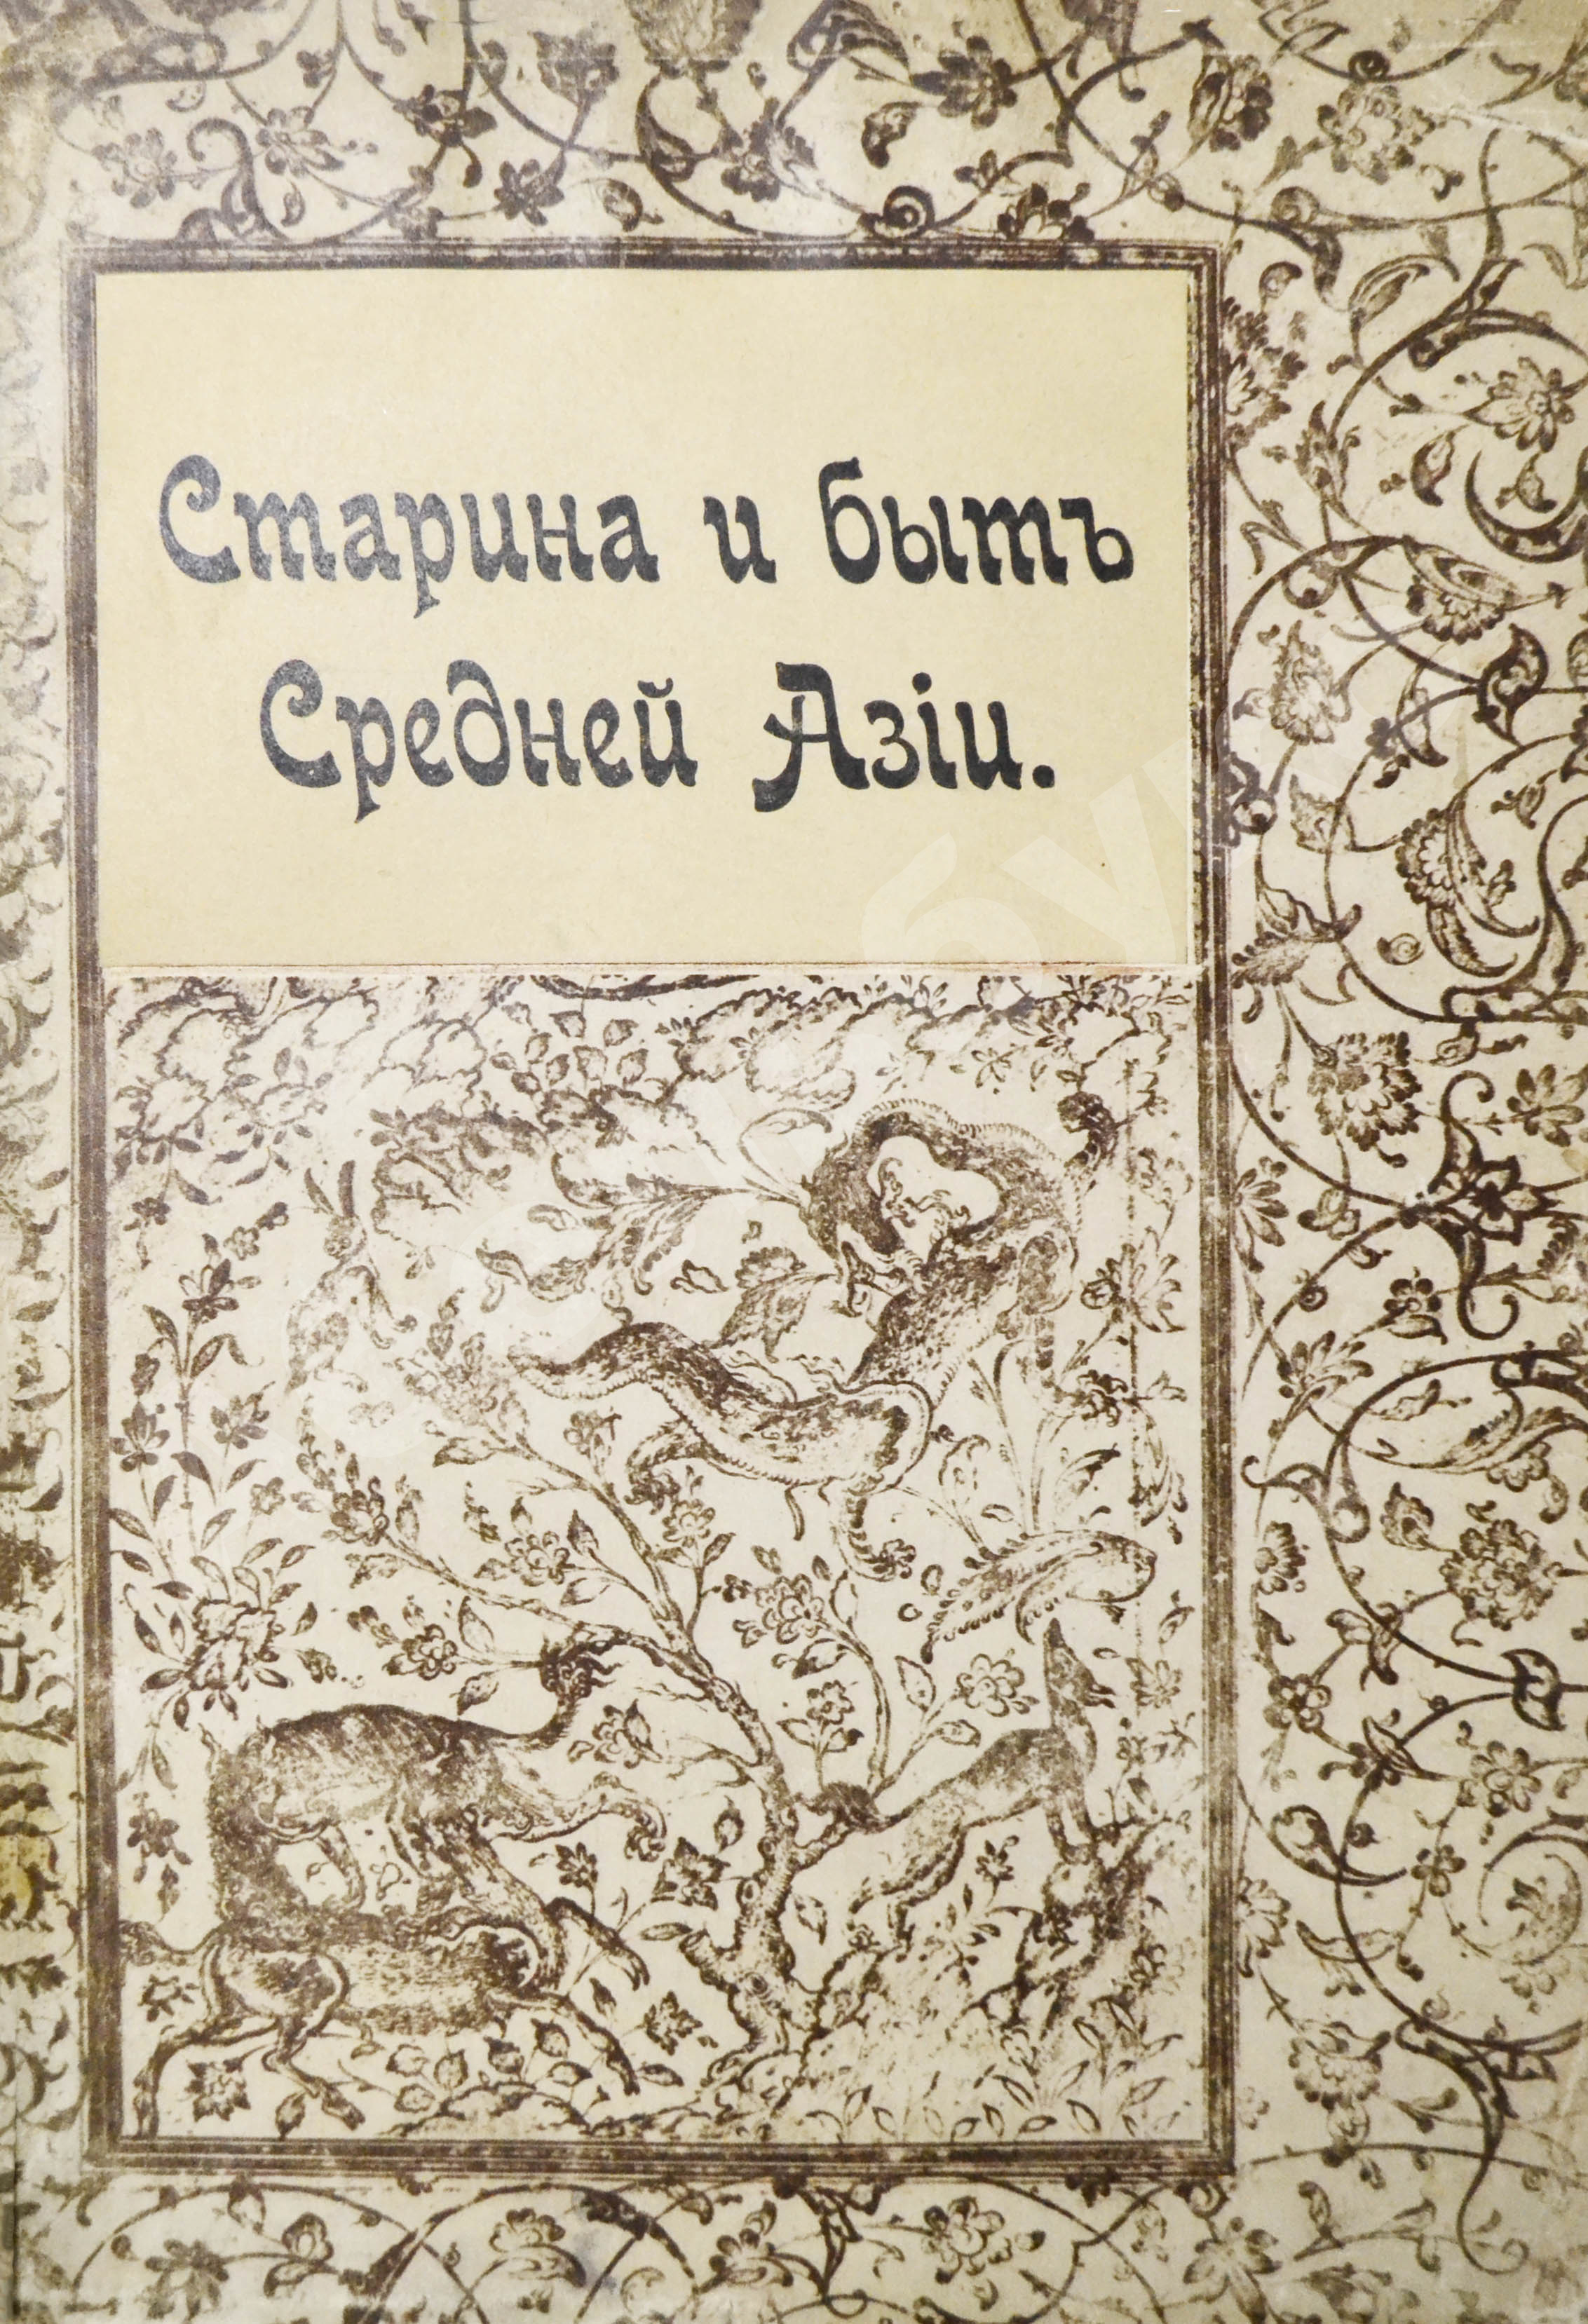 Старина и бытъ
Средней Азіи.